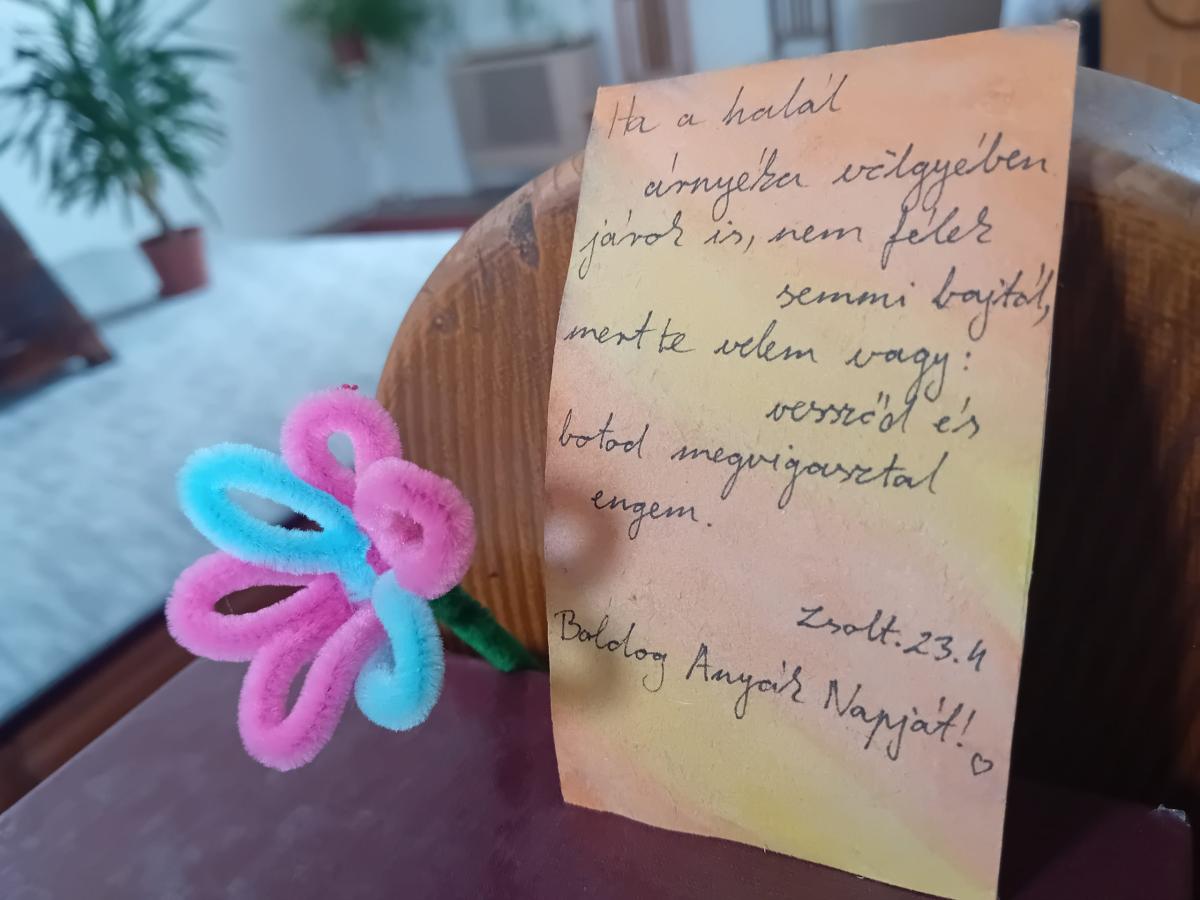 Ha a halál
árnyéka völgyében
járok is, nem félek
semmi bajtól,
mert te velem vagy:
vessződ és
botod megvigasztal
engem.
Zsolt.23.4
Boldog Anyák Napját!